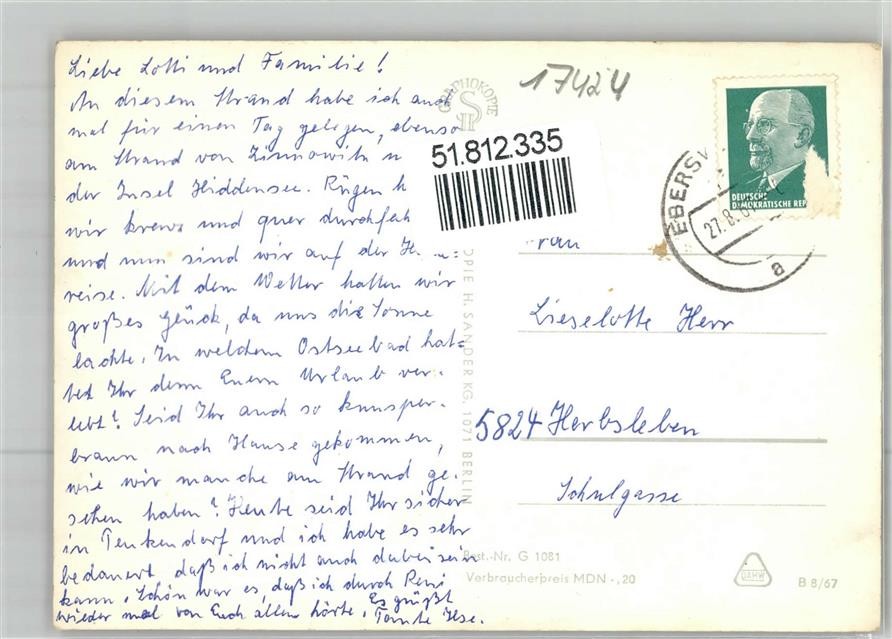 Liebe Lotti und Familie!
An diesem Strand habe ich auch
mal für einen Tag gelegen, ebenso
am Strand von Zinnowitz
der Insel Hiddensee. Rügen
wir kreuz und quer
und nun sind wir auf der
reise. Mit dem Wetter hatten wir
großes Glück, da uns die Sonne
lachte. In welchem Ostseebad hat=
tet Ihr denn Euern Urlaub ver-
lebt? Seid Ihr auch so knusper-
braun nach Hause gekommen,
wie wir manche am Strand ge-
sehen haben? Heute seid Ihr sicher
in Tenkendorf und ich habe es sehr
bedauert, daß ich nicht auch dabei sein
kann. Schön war es, daß ich durch Reni
wieder mal von Euch allen hörte. Es grüßt
Tante Ilse.
17424
GRAPHOKOPIE
51.812.335
OPIE H. SANDER KG, 1071 BERLIN
DEUTSCHE
DEMOKRATISCHE REP
EBERSW
27.8.6
a
Frau
Lieselotte Herr
5824 Herbsleben
Schulgasse
Best.-Nr. G 1081
Verbraucherpreis MDN -,20
DAHW
B 8/67